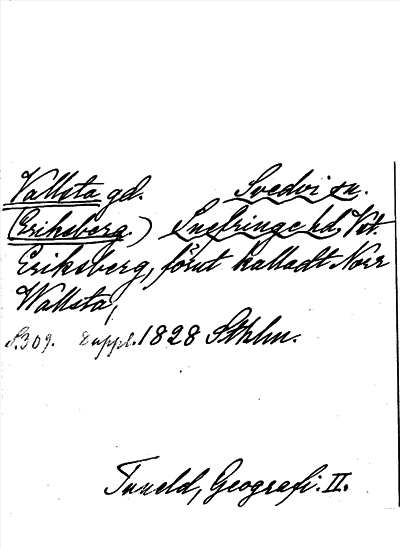 Vallsta gd. Svedvi sn.
(Eriksberg.) Snefringe hd. Vst.
Eriksberg, förut kalladt Norr
Wallsta,
S.309. 8 uppl. 1828 Sthlm.
Tuneld, Geografi. II.